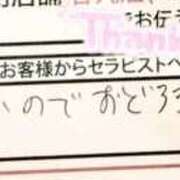 お伝
Thank
お客様からセラピストへ
のでおどろき